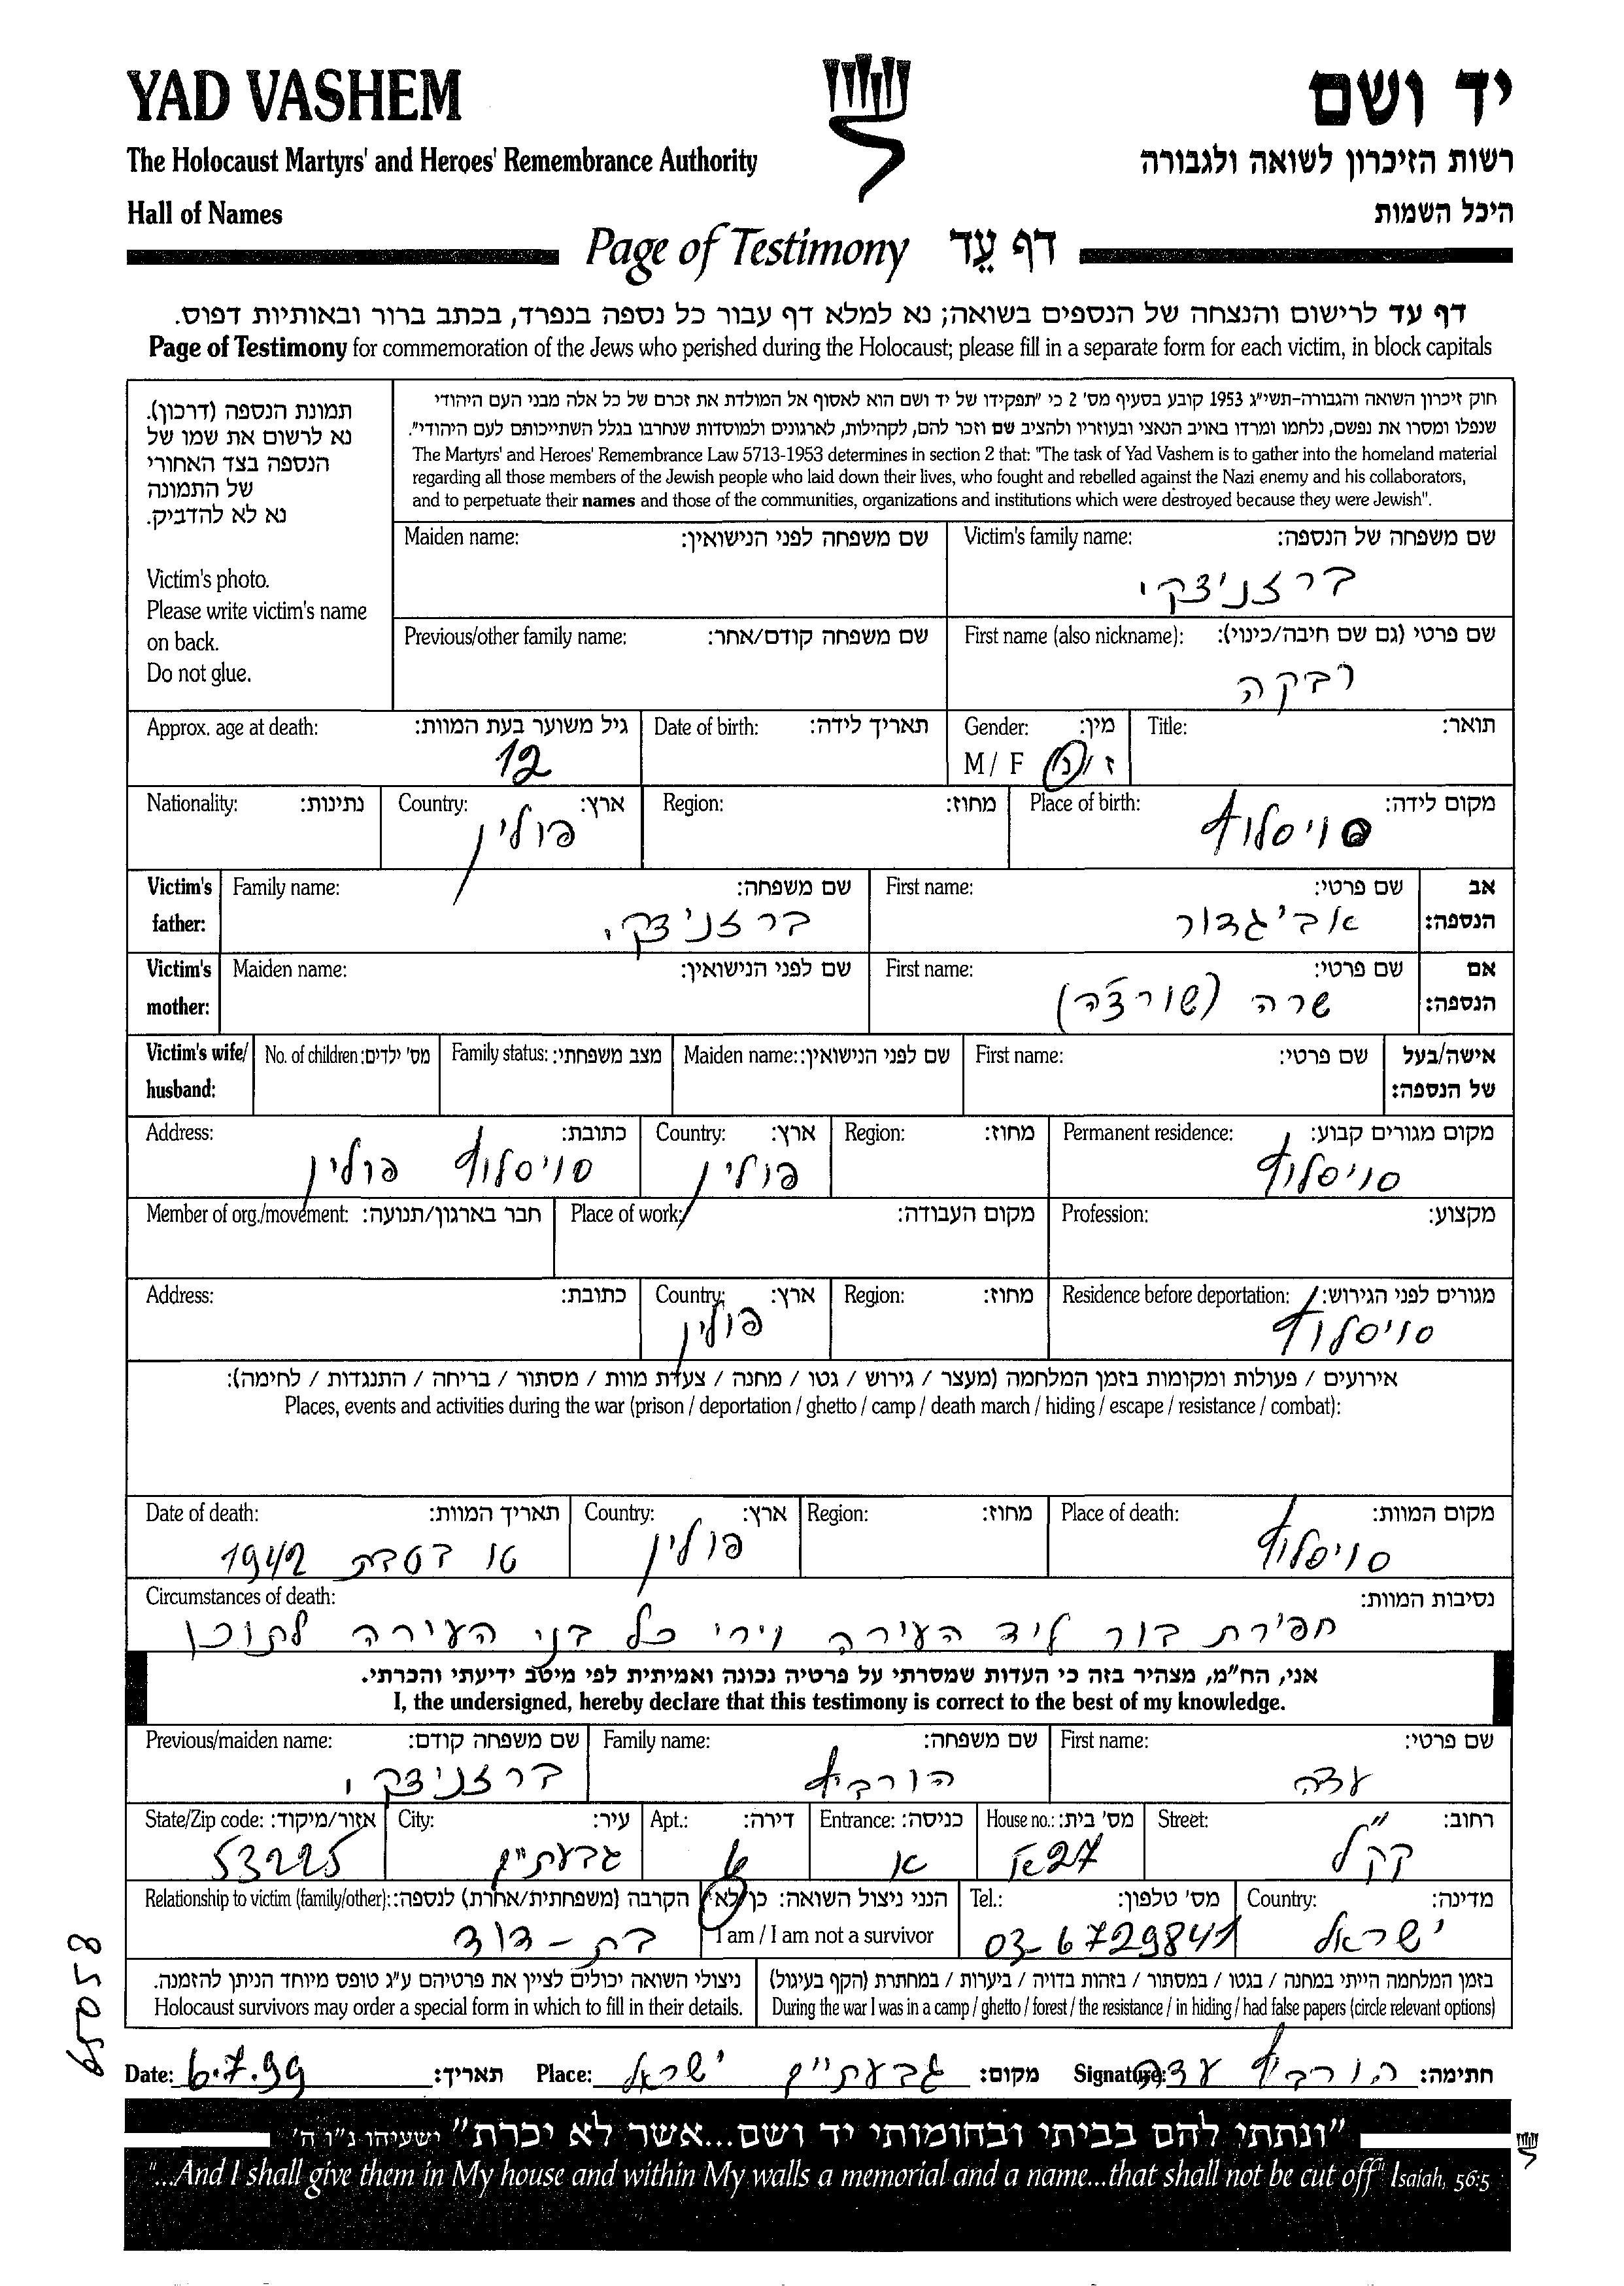 YAD VASHEM
יד ושם
The Holocaust Martyrs' and Heroes' Remembrance Authority
רשות הזיכרון לשואה ולגבורה
Hall of Names
היכל השמות
Page of Testimony דף עֵד
דף עד לרישום והנצחה של הנספים בשואה; נא למלא דף עבור כל נספה בנפרד, בכתב ברור ובאותיות דפוס.
Page of Testimony for commemoration of the Jews who perished during the Holocaust; please fill in a separate form for each victim, in block capitals
תמונת הנספה (דרכון).
נא לרשום את שמו של
הנספה בצד האחורי
של התמונה
נא לא להדביק.
Victim's photo.
Please write victim's name
on back.
Do not glue.
חוק זיכרון השואה והגבורה-תשי"ג 1953 קובע בסעיף מס' 2 כי "תפקידו של יד ושם הוא לאסוף אל המולדת את זכרם של כל אלה מבני העם היהודי
שנפלו ומסרו את נפשם, נלחמו ומרדו באויב הנאצי ובעוזריו ולהציב שם וזכר להם, לקהילות, לארגונים ולמוסדות שנחרבו בגלל השתייכותם לעם היהודי".
The Martyrs' and Heroes' Remembrance Law 5713-1953 determines in section 2 that: "The task of Yad Vashem is to gather into the homeland material
regarding all those members of the Jewish people who laid down their lives, who fought and rebelled against the Nazi enemy and his collaborators,
and to perpetuate their names and those of the communities, organizations and institutions which were destroyed because they were Jewish".
Victim's family name: שם משפחה של הנספה:
ברזניצקי
Maiden name: שם משפחה לפני הנישואין:
First name (also nickname): שם פרטי (גם שם חיבה/כינוי):
רבקה
Previous/other family name: שם משפחה קודם/אחר:
Title: תואר:
Gender: מין:
M / F ז / נ
Date of birth: תאריך לידה:
Approx. age at death: גיל משוער בעת המוות:
12
Place of birth: מקום לידה:
סויסלוץ
Region: מחוז:
Country: ארץ:
פולין
Nationality: נתינות:
Victim's father: אב הנספה:
First name: שם פרטי:
אביגדור
Family name: שם משפחה:
ברזניצקי
Victim's mother: אם הנספה:
First name: שם פרטי:
שרה (שורצ'ה)
Maiden name: שם לפני הנישואין:
Victim's wife/ husband: אישה/בעל של הנספה:
First name: שם פרטי:
Maiden name: שם לפני הנישואין:
Family status: מצב משפחתי:
No. of children: מס' ילדים:
Permanent residence: מקום מגורים קבוע:
סויסלוץ
Region: מחוז:
Country: ארץ:
פולין
Address: כתובת:
סויסלוץ פולין
Profession: מקצוע:
Place of work: מקום העבודה:
Member of org./movement: חבר בארגון/תנועה:
Residence before deportation: מגורים לפני הגירוש:
סויסלוץ
Region: מחוז:
Country: ארץ:
פולין
Address: כתובת:
אירועים / פעולות ומקומות בזמן המלחמה (מעצר / גירוש / גטו / מחנה / צעדת מוות / מסתור / בריחה / התנגדות / לחימה):
Places, events and activities during the war (prison / deportation / ghetto / camp / death march / hiding / escape / resistance / combat):
Place of death: מקום המוות:
סויסלוץ
Region: מחוז:
Country: ארץ:
פולין
Date of death: תאריך המוות:
טו בטבת 1942
Circumstances of death: נסיבות המוות:
חפירת בור ליד העירה וירי כל בני העירה לתוכו
אני, הח"מ, מצהיר בזה כי העדות שמסרתי על פרטיה נכונה ואמיתית לפי מיטב ידיעתי והכרתי.
I, the undersigned, hereby declare that this testimony is correct to the best of my knowledge.
First name: שם פרטי:
עדה
Family name: שם משפחה:
הורביץ
Previous/maiden name: שם משפחה קודם:
ברזניצקי
Street: רחוב:
קק"ל
House no.: מס' בית:
27א
Entrance: כניסה:
א
Apt.: דירה:
6
City: עיר:
גבעתיים
State/Zip code: אזור/מיקוד:
53225
Country: מדינה:
ישראל
Tel.: מס' טלפון:
03-6729841
הנני ניצול השואה: כן/לא
I am / I am not a survivor
Relationship to victim (family/other): הקרבה (משפחתית/אחרת) לנספה:
בת-דוד
בזמן המלחמה הייתי במחנה / בגטו / במסתור / בזהות בדויה / ביערות / במחתרת (הקף בעיגול)
During the war I was in a camp / ghetto / forest / the resistance / in hiding / had false papers (circle relevant options)
ניצולי השואה יכולים לציין את פרטיהם ע"ג טופס מיוחד הניתן להזמנה.
Holocaust survivors may order a special form in which to fill in their details.
65058
Date: 6.7.99 תאריך: Place: גבעתיים ישראל מקום: Signature: הורביץ עדה חתימה:
"ונתתי להם בביתי ובחומותי יד ושם...אשר לא יכרת" ישעיהו נ"ו ה'
"...And I shall give them in My house and within My walls a memorial and a name...that shall not be cut off" Isaiah, 56:5